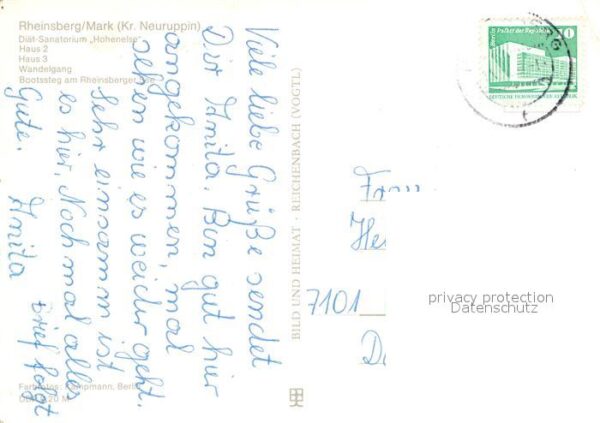 Rheinsberg/Mark (Kr. Neuruppin)
Diät-Sanatorium „Hohenelse"
Haus 2
Haus 3
Wandelgang
Bootssteg am Rheinsberger See
Viele liebe Grüße sendet
Dir Anita. Bin gut hier
angekommen, mal
sehen wie es weiter geht.
Sehr einsamm ist
es hier. Noch mal alles
Gute. Anita
Brief folgt
Farbfotos: Kampmann, Berlin
BILD UND HEIMAT · REICHENBACH (VOGTL)
Berlin Palast der Republik
10
DEUTSCHE DEMOKRATISCHE REPUBLIK
Frau
He
7101
D
privacy protection
Datenschutz